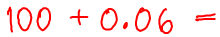 100 + 0.06 =